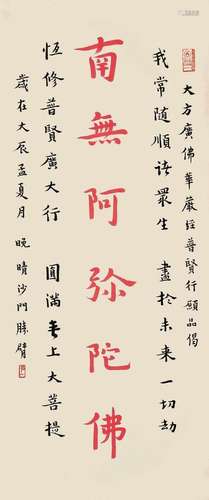 大方廣佛華嚴經普賢行願品偈
我常隨順諸眾生 盡於未來一切劫
南無阿弥陀佛
恆修普賢廣大行 圓滿無上大菩提
歲在大辰孟夏月 晚晴沙門勝臂